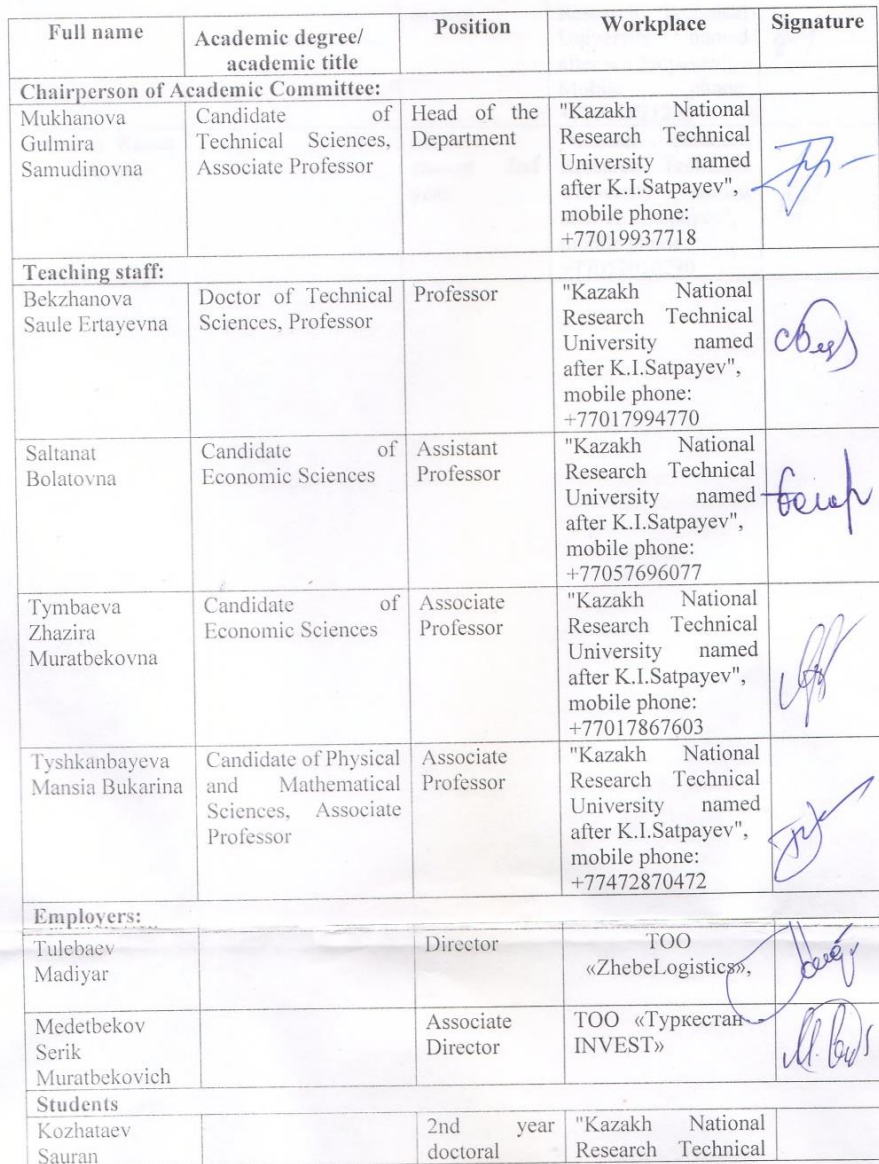 Full name | Academic degree/ academic title | Position | Workplace | Signature
Chairperson of Academic Committee:
Mukhanova Gulmira Samudinovna | Candidate of Technical Sciences, Associate Professor | Head of the Department | "Kazakh National Research Technical University named after K.I.Satpayev", mobile phone: +77019937718
Teaching staff:
Bekzhanova Saule Ertayevna | Doctor of Technical Sciences, Professor | Professor | "Kazakh National Research Technical University named after K.I.Satpayev", mobile phone: +77017994770
Saltanat Bolatovna | Candidate of Economic Sciences | Assistant Professor | "Kazakh National Research Technical University named after K.I.Satpayev", mobile phone: +77057696077
Tymbaeva Zhazira Muratbekovna | Candidate of Economic Sciences | Associate Professor | "Kazakh National Research Technical University named after K.I.Satpayev", mobile phone: +77017867603
Tyshkanbayeva Mansia Bukarina | Candidate of Physical and Mathematical Sciences, Associate Professor | Associate Professor | "Kazakh National Research Technical University named after K.I.Satpayev", mobile phone: +77472870472
Employers:
Tulebaev Madiyar | Director | ТОО «ZhebeLogistics»,
Medetbekov Serik Muratbekovich | Associate Director | ТОО «Туркестан - INVEST»
Students
Kozhataev Sauran | 2nd year doctoral | "Kazakh National Research Technical